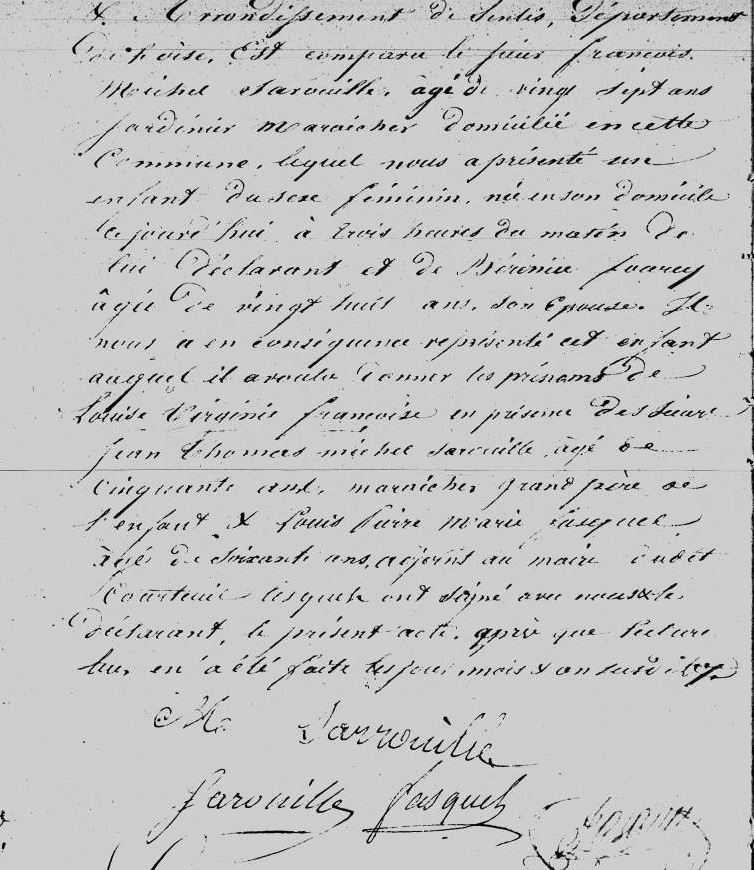 & Arrondissement de Senlis, Département
de l'oise, Est comparu le sieur francois
Michel Sarouille, âgé de vingt sept ans
Jardinier maraicher domicilié en cette
Commune, lequel nous a présenté un
enfant du sexe féminin, née en son domicile
cejourd'hui à trois heures du matin de
lui Déclarant et de Bérénice
âgée de vingt huit ans, son Epouse. Il
nous a en conséquence représenté cet enfant
auquel il a voulu donner les prénoms de
Louise Virginie francoise en présence des sieurs
Jean Thomas michel Sarouille, âgé de
Cinquante ans, maraicher grand père de
l'enfant & Louis pierre marie pasquel
âgé de soixante ans, adjoint au maire dudit
Courteuil lesquels ont signé avec nous & le
Déclarant, le présent acte, après que lecture
leur en a été faite les jour, mois & an susdit
Sarrouille
Sarouille Pasquel